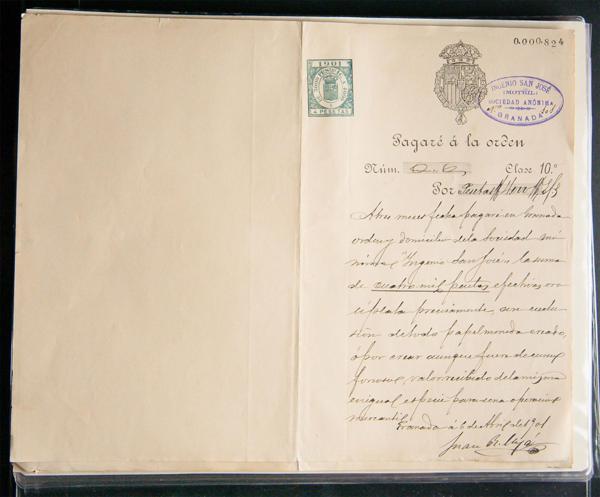 0.000.824
1901
4 PESETAS
INGENIO SAN JOSÉ
(MOTRIL)
SOCIEDAD ANÓNIMA
GRANADA
Pagaré á la orden
Núm. Clase 10.ª
Por Pesetas
A tres meses fecha pagaré en Granada
orden y domicilio de la Sociedad anó-
nima "Ingenio San José", la suma
de cuatro mil pesetas efectivas, oro
ó plata precisamente, con exclu-
sión de todo papel moneda creado,
ó por crear aunque fuera de curso
forzoso, valor recibido de la misma
en igual especie para una operación
mercantil.
Granada á 6 de Abril de 1901
Juan